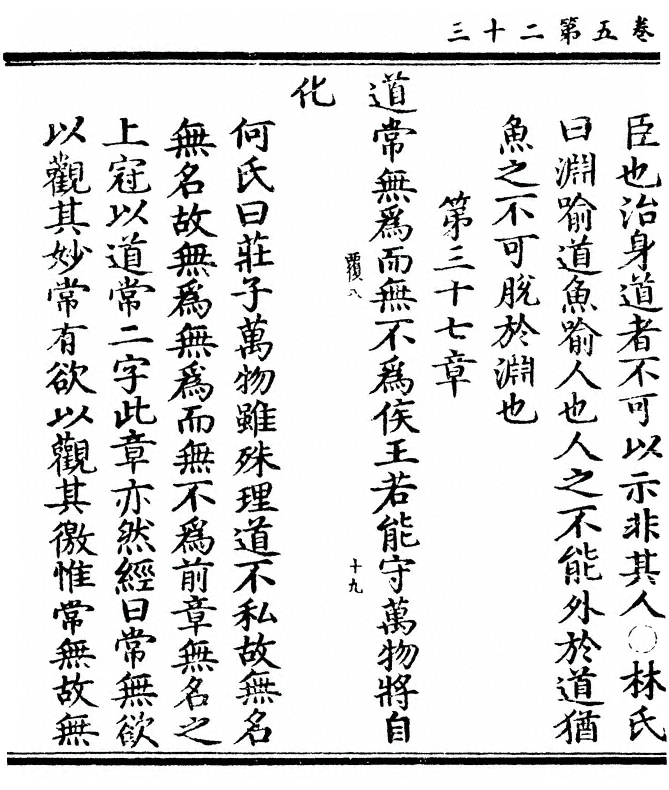 三十二第五卷
臣也治身道者不可以示非其人○林氏
曰淵喻道魚喻人也人之不能外於道猶
魚之不可脫於淵也
第三十七章
道常無爲而無不爲侯王若能守萬物將自
覆八 十九
化
何氏曰莊子萬物雖殊理道不私故無名
無名故無爲無爲而無不爲前章無名之
上冠以道常二字此章亦然經曰常無欲
以觀其妙常有欲以觀其徼惟常無故無